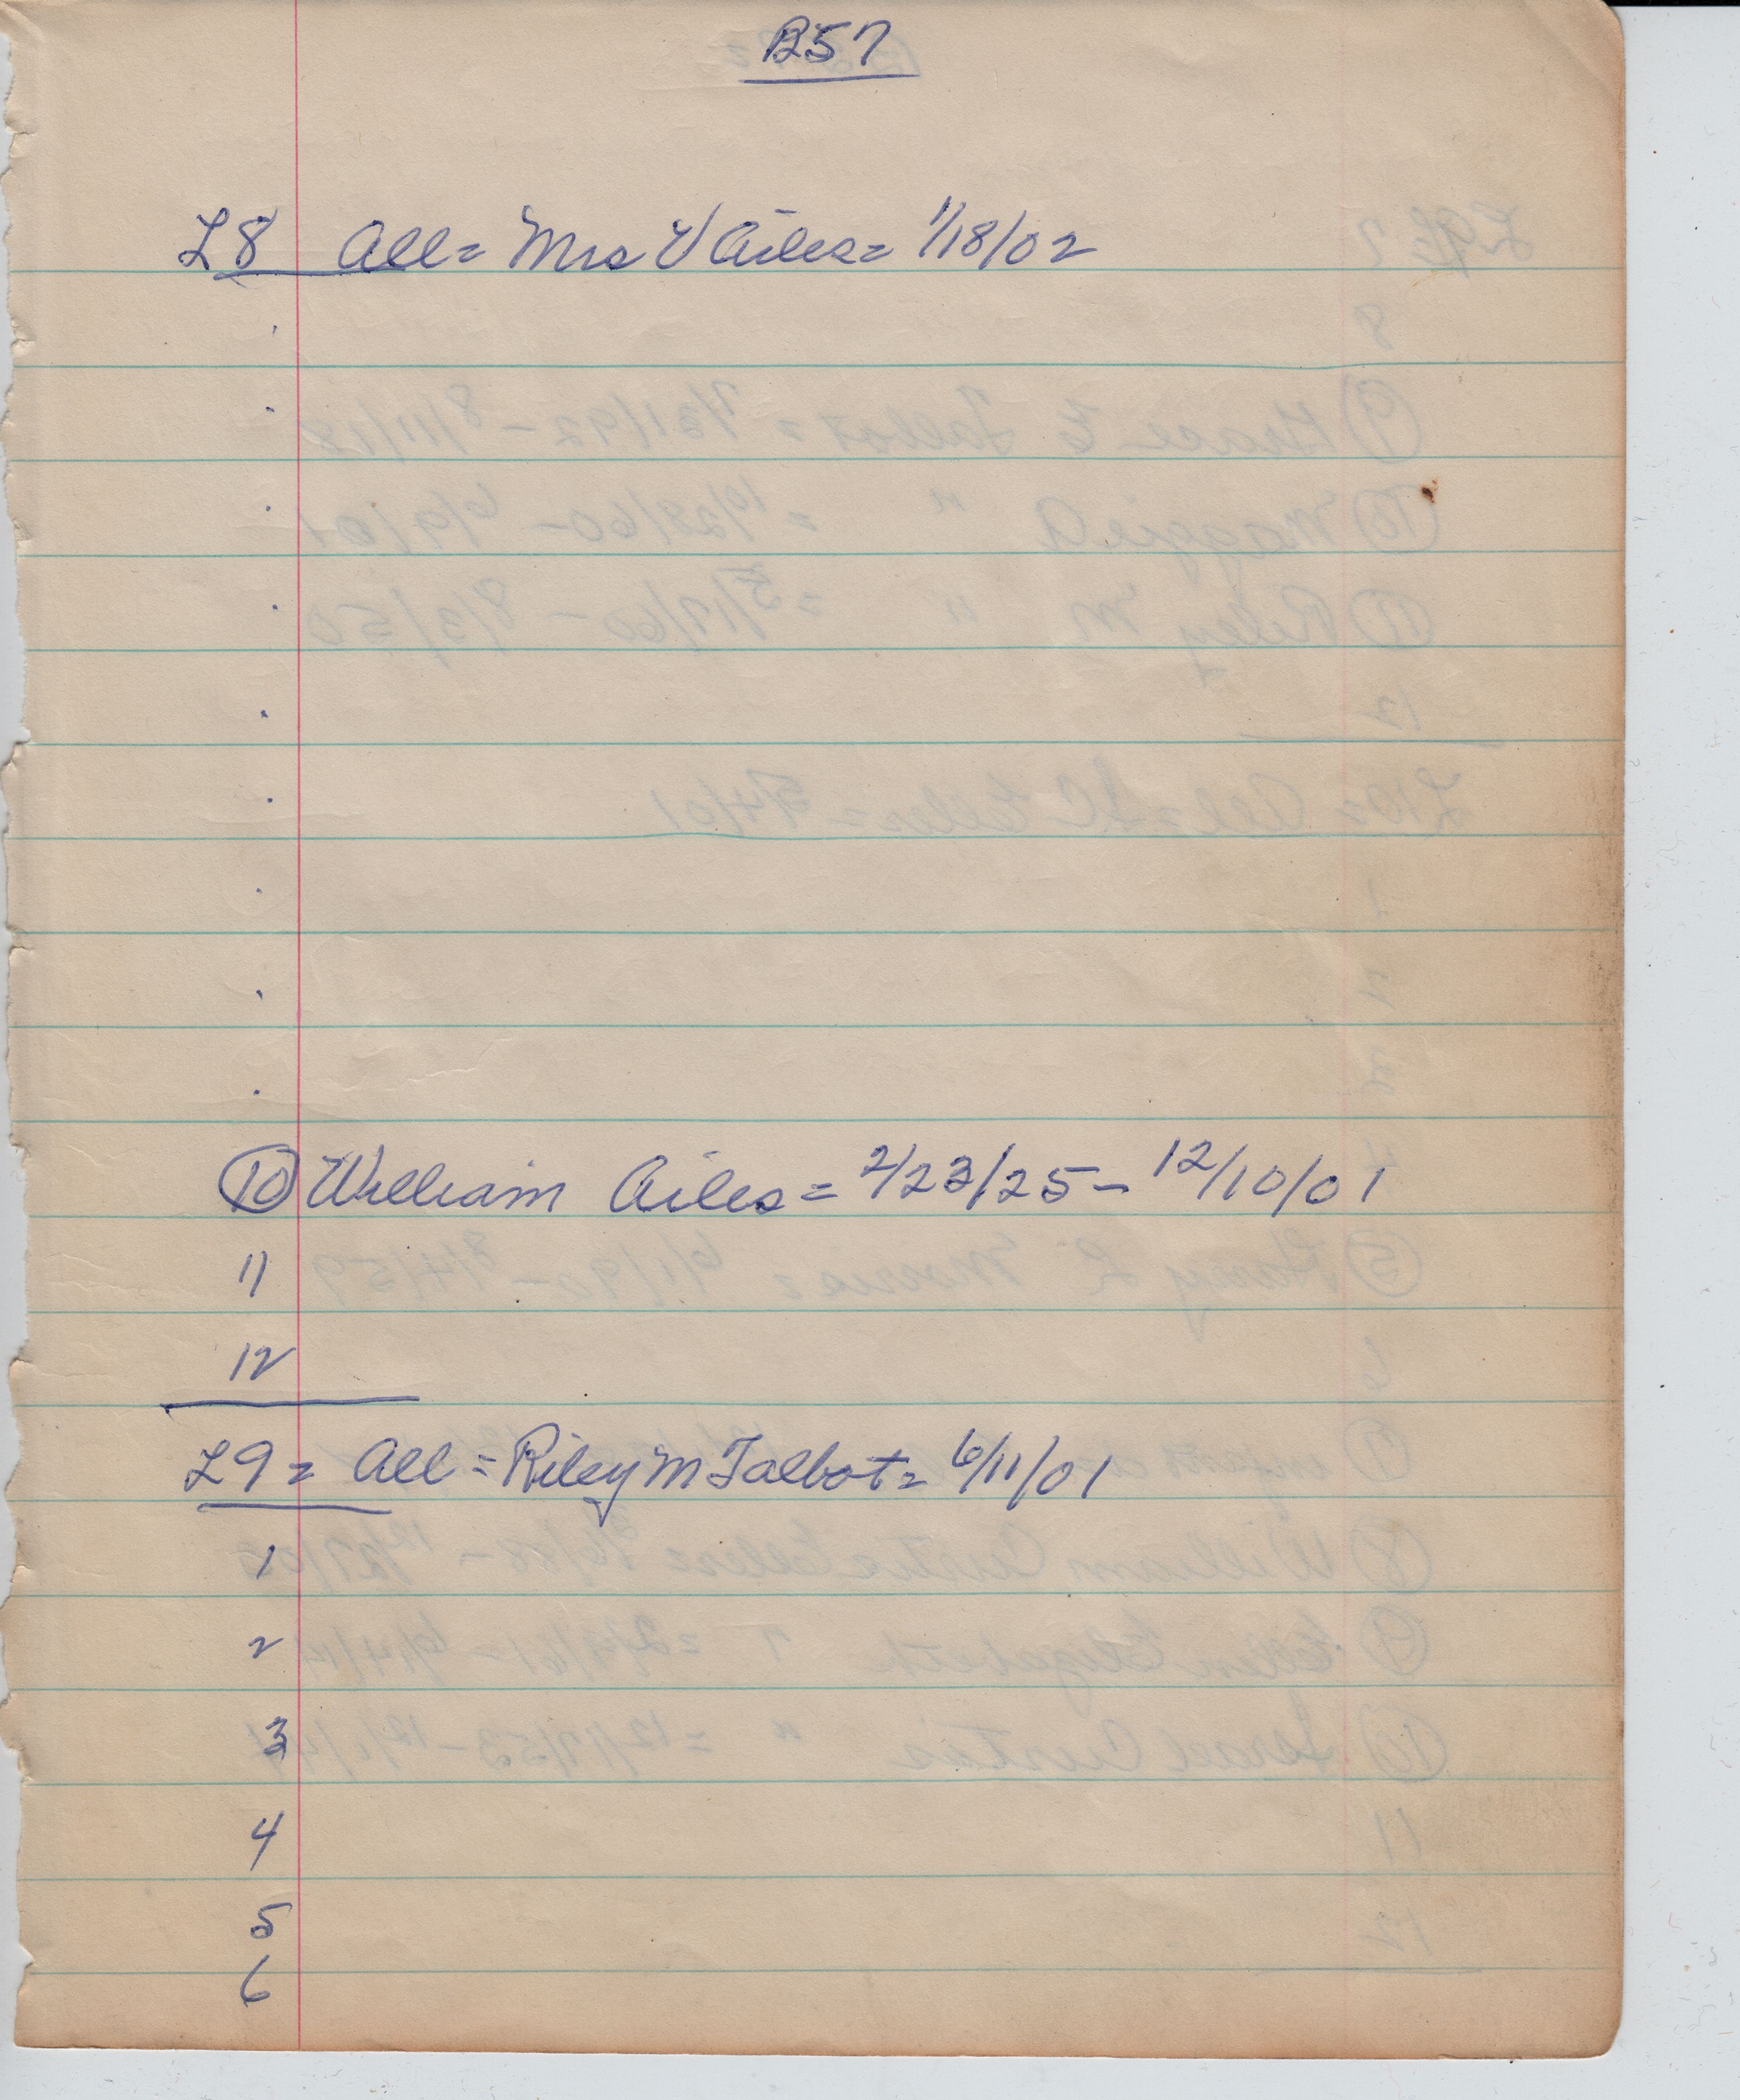 B57
L8 All = Mrs V Ailes = 1/18/02
.
.
.
.
.
.
.
.
.
10 William Ailes = 2/23/25 - 12/10/01
11
12
L9 = All = Riley M Talbot = 6/11/01
1
2
3
4
5
6